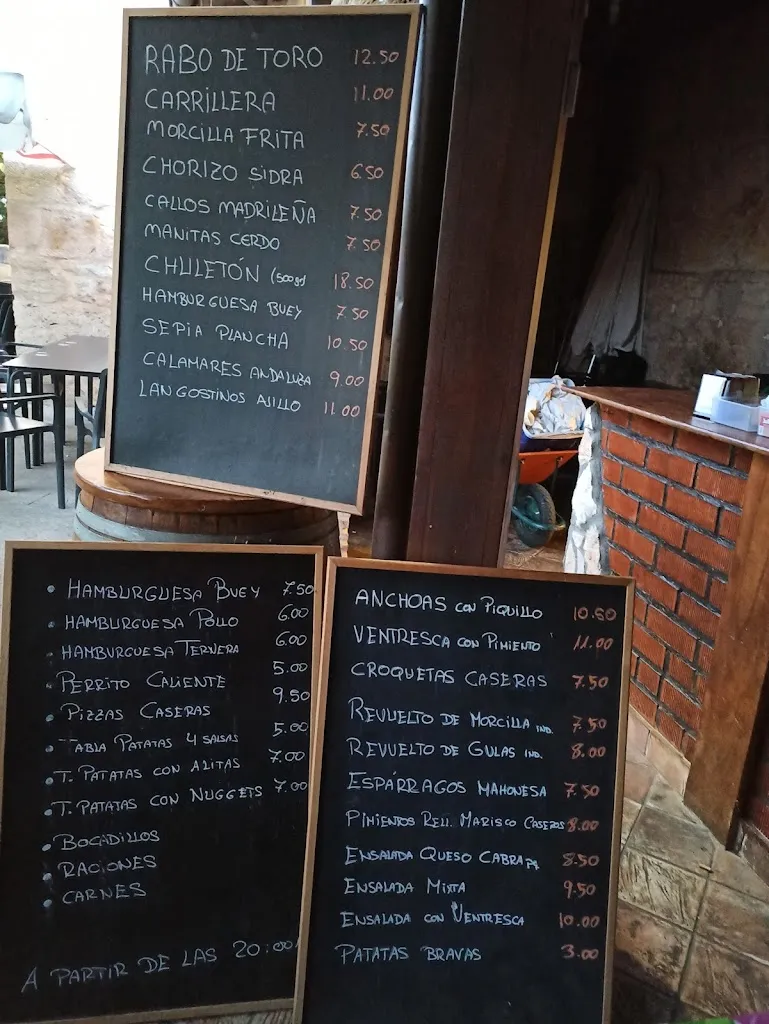 RABO DE TORO 12.50
CARRILLERA 11.00
MORCILLA FRITA 7.50
CHORIZO SIDRA 6.50
CALLOS MADRILEÑA 7.50
MANITAS CERDO 7.50
CHULETÓN (500gr) 18.50
HAMBURGUESA BUEY 7.50
SEPIA PLANCHA 10.50
CALAMARES ANDALUZA 9.00
LANGOSTINOS AJILLO 11.00
• HAMBURGUESA BUEY 7.50
• HAMBURGUESA POLLO 6.00
• HAMBURGUESA TERNERA 6.00
• PERRITO CALIENTE 5.00
• PIZZAS CASERAS 9.50
• TABLA PATATAS 4 SALSAS 5.00
• T. PATATAS CON ALITAS 7.00
• T. PATATAS CON NUGGETS 7.00
• BOCADILLOS
• RACIONES
• CARNES
A PARTIR DE LAS 20:00
ANCHOAS CON PIQUILLO 10.50
VENTRESCA CON PIMIENTO 11.00
CROQUETAS CASERAS 7.50
REVUELTO DE MORCILLA IND. 7.50
REVUELTO DE GULAS IND. 8.00
ESPÁRRAGOS MAHONESA 7.50
PIMIENTOS RELL. MARISCO CASEROS 8.00
ENSALADA QUESO CABRA 8.50
ENSALADA MIXTA 9.50
ENSALADA CON VENTRESCA 10.00
PATATAS BRAVAS 3.00